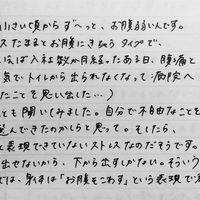 小さい頃からずーっと、お腹弱いんです。
スたまるとお腹にきちゃうタイプで、
ば入社数か月経ったある日、腹痛と
気でトイレから出られなくなって病院へ
たことを思い出した…)
とも聞いてみました。自分で不自由なことを
選んできたのかしらと思って。そしたら、
表現できていないストレスなのだそうです。
出せないから、下から出すしかない。そういう
では、身体は「お腹をこわす」という表現で